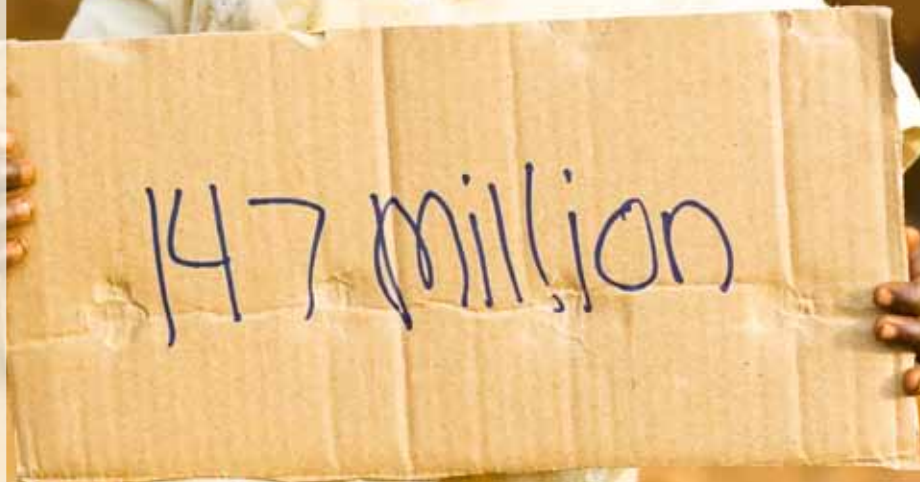 147 million